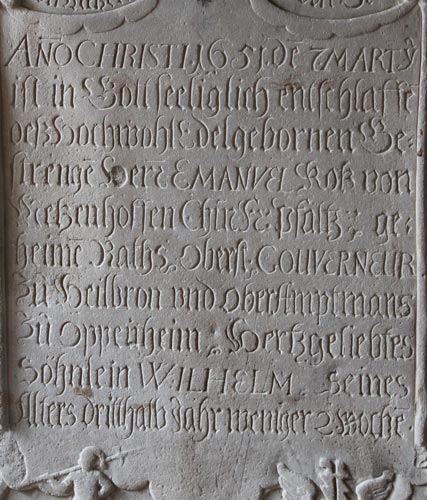 AÑO CHRISTI 1651 dē 7 MARTÿ
ist in Gott seeliglich entschlaffē
deß Hochwohl Edelgebornen Ge-
strengē Herrē EMANUEL Roß von
Metzenhoffen Chūr Pfaltz ge-
heimē Raths Oberst GOUVERNEUR
Zu Heilbron und Oberamptmans
Zu Oppenheim Hertzgeliebtes
Söhnlein WILHELM Seines
Alters dritthalb Jahr weniger 2 Wochē